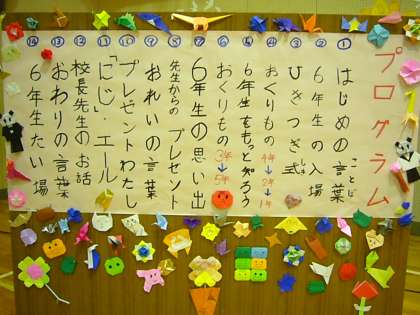 プログラム
① はじめの言葉 ことば
② 6年生の入場
③ ひきつぎ式 しき
④ おくりもの 4年→2年→1年
⑤ 6年生をもっと知ろう
⑥ おくりもの 3年→5年
⑦ 6年生の思い出
⑧ 先生からのプレゼント
⑨ おれいの言葉
⑩ プレゼントわたし
⑪ 「にじ」・エール
⑫ 校長先生のお話
⑬ おわりの言葉
⑭ 6年生たい場